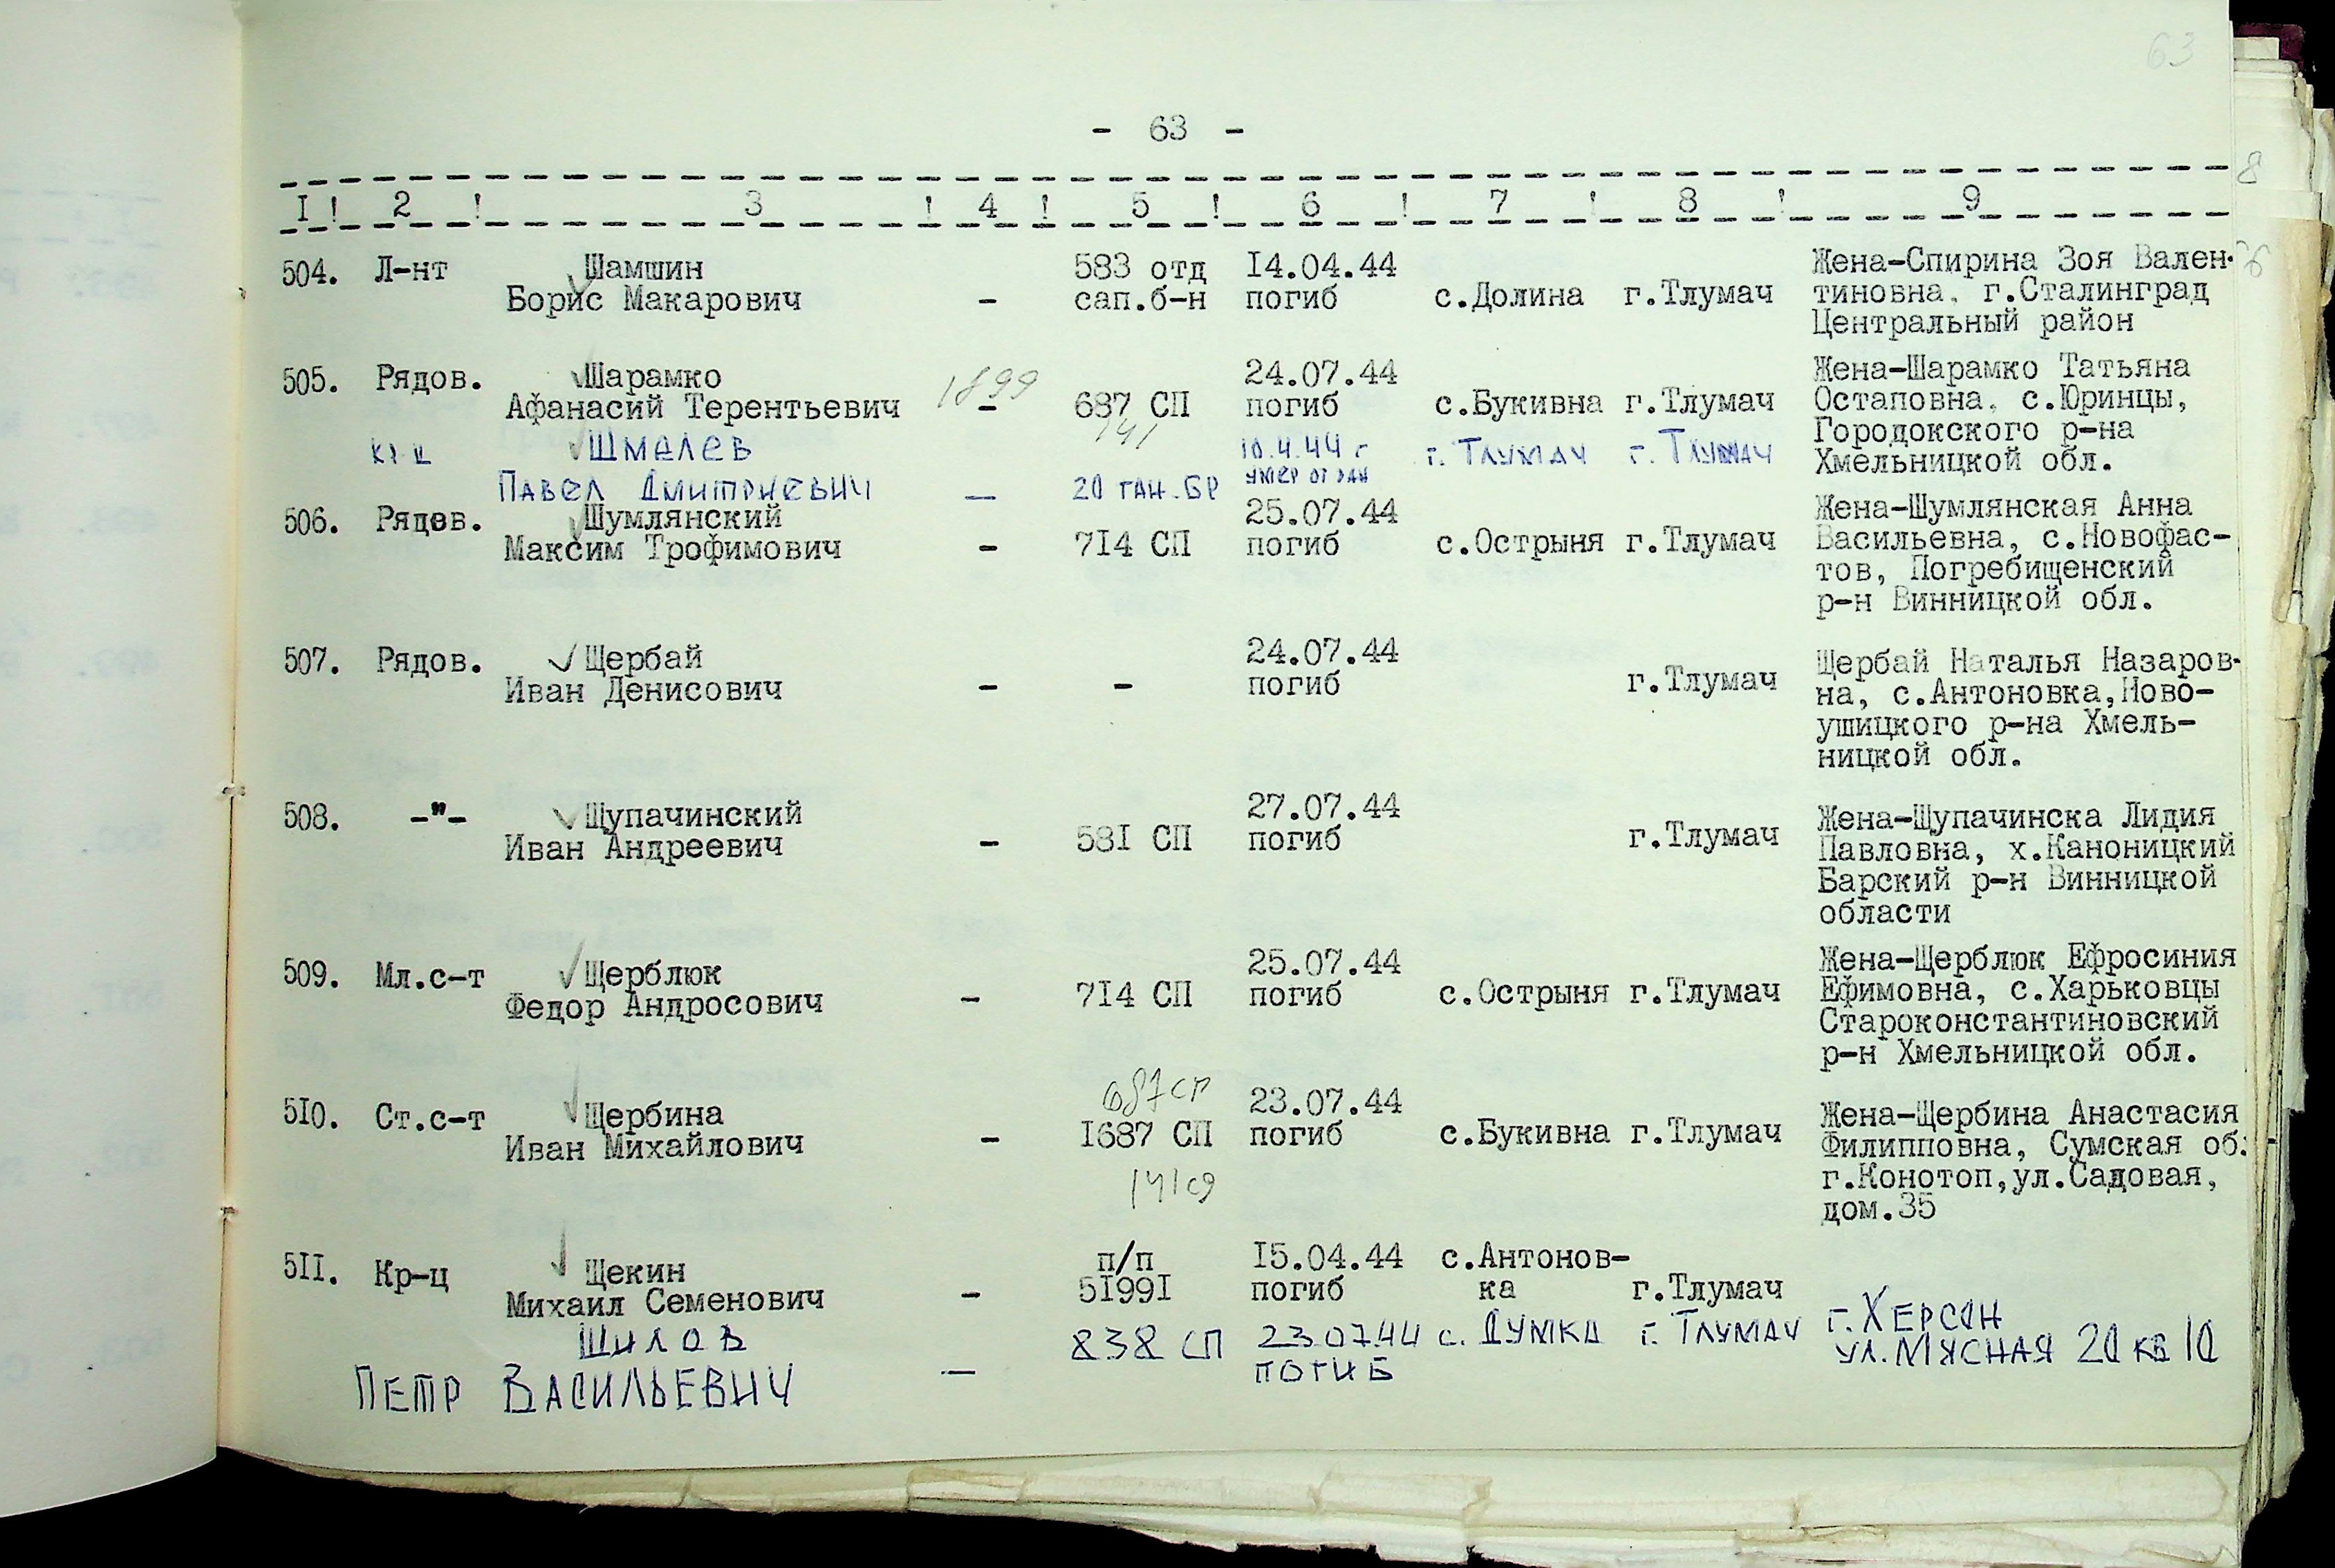 63
- 63 -
8
I ! 2 ! 3 ! 4 ! 5 ! 6 ! 7 ! 8 ! 9
504. Л-нт Шамшин 583 отд I4.04.44 Жена-Спирина Зоя Вален-
Борис Макарович - сап.б-н погиб с.Долина г.Тлумач тиновна, г.Сталинград
Центральный район
505. Рядов. Шарамко 24.07.44 Жена-Шарамко Татьяна
1899
Афанасий Терентьевич - 687 СП погиб с.Букивна г.Тлумач Остаповна, с.Юринцы,
141
Городокского р-на
Хмельницкой обл.
Шмелев 10.4.44 г г. Тлумач г. Тлумач
Павел Дмитриевич — 20 тан.бр умер от ран
506. Рядов. Шумлянский 25.07.44 Жена-Шумлянская Анна
Максим Трофимович - 7I4 СП погиб с.Острыня г.Тлумач Васильевна, с.Новофас-
тов, Погребищенский
р-н Винницкой обл.
507. Рядов. Щербай 24.07.44 Щербай Наталья Назаров-
Иван Денисович - - погиб г.Тлумач на, с.Антоновка,Ново-
ушицкого р-на Хмель-
ницкой обл.
508. -"- Щупачинский 27.07.44 Жена-Щупачинска Лидия
Иван Андреевич - 58I СП погиб г.Тлумач Павловна, х.Каноницкий
Барский р-н Винницкой
области
509. Мл.с-т Щерблюк 25.07.44 Жена-Щерблюк Ефросиния
Федор Андросович - 7I4 СП погиб с.Острыня г.Тлумач Ефимовна, с.Харьковцы
Староконстантиновский
р-н Хмельницкой обл.
687 сп
5I0. Ст.с-т Щербина 23.07.44 Жена-Щербина Анастасия
Иван Михайлович - I687 СП погиб с.Букивна г.Тлумач Филипповна, Сумская об.
141 сд
г.Конотоп,ул.Садовая,
дом.35
5II. Кр-ц Щекин п/п I5.04.44 с.Антонов-
Михаил Семенович - 5I99I погиб ка г.Тлумач
Шилов 838 СП 23.07.44 с. Думка г. Тлумач г. Херсон
Петр Васильевич — погиб ул. Мясная 20 кв 10